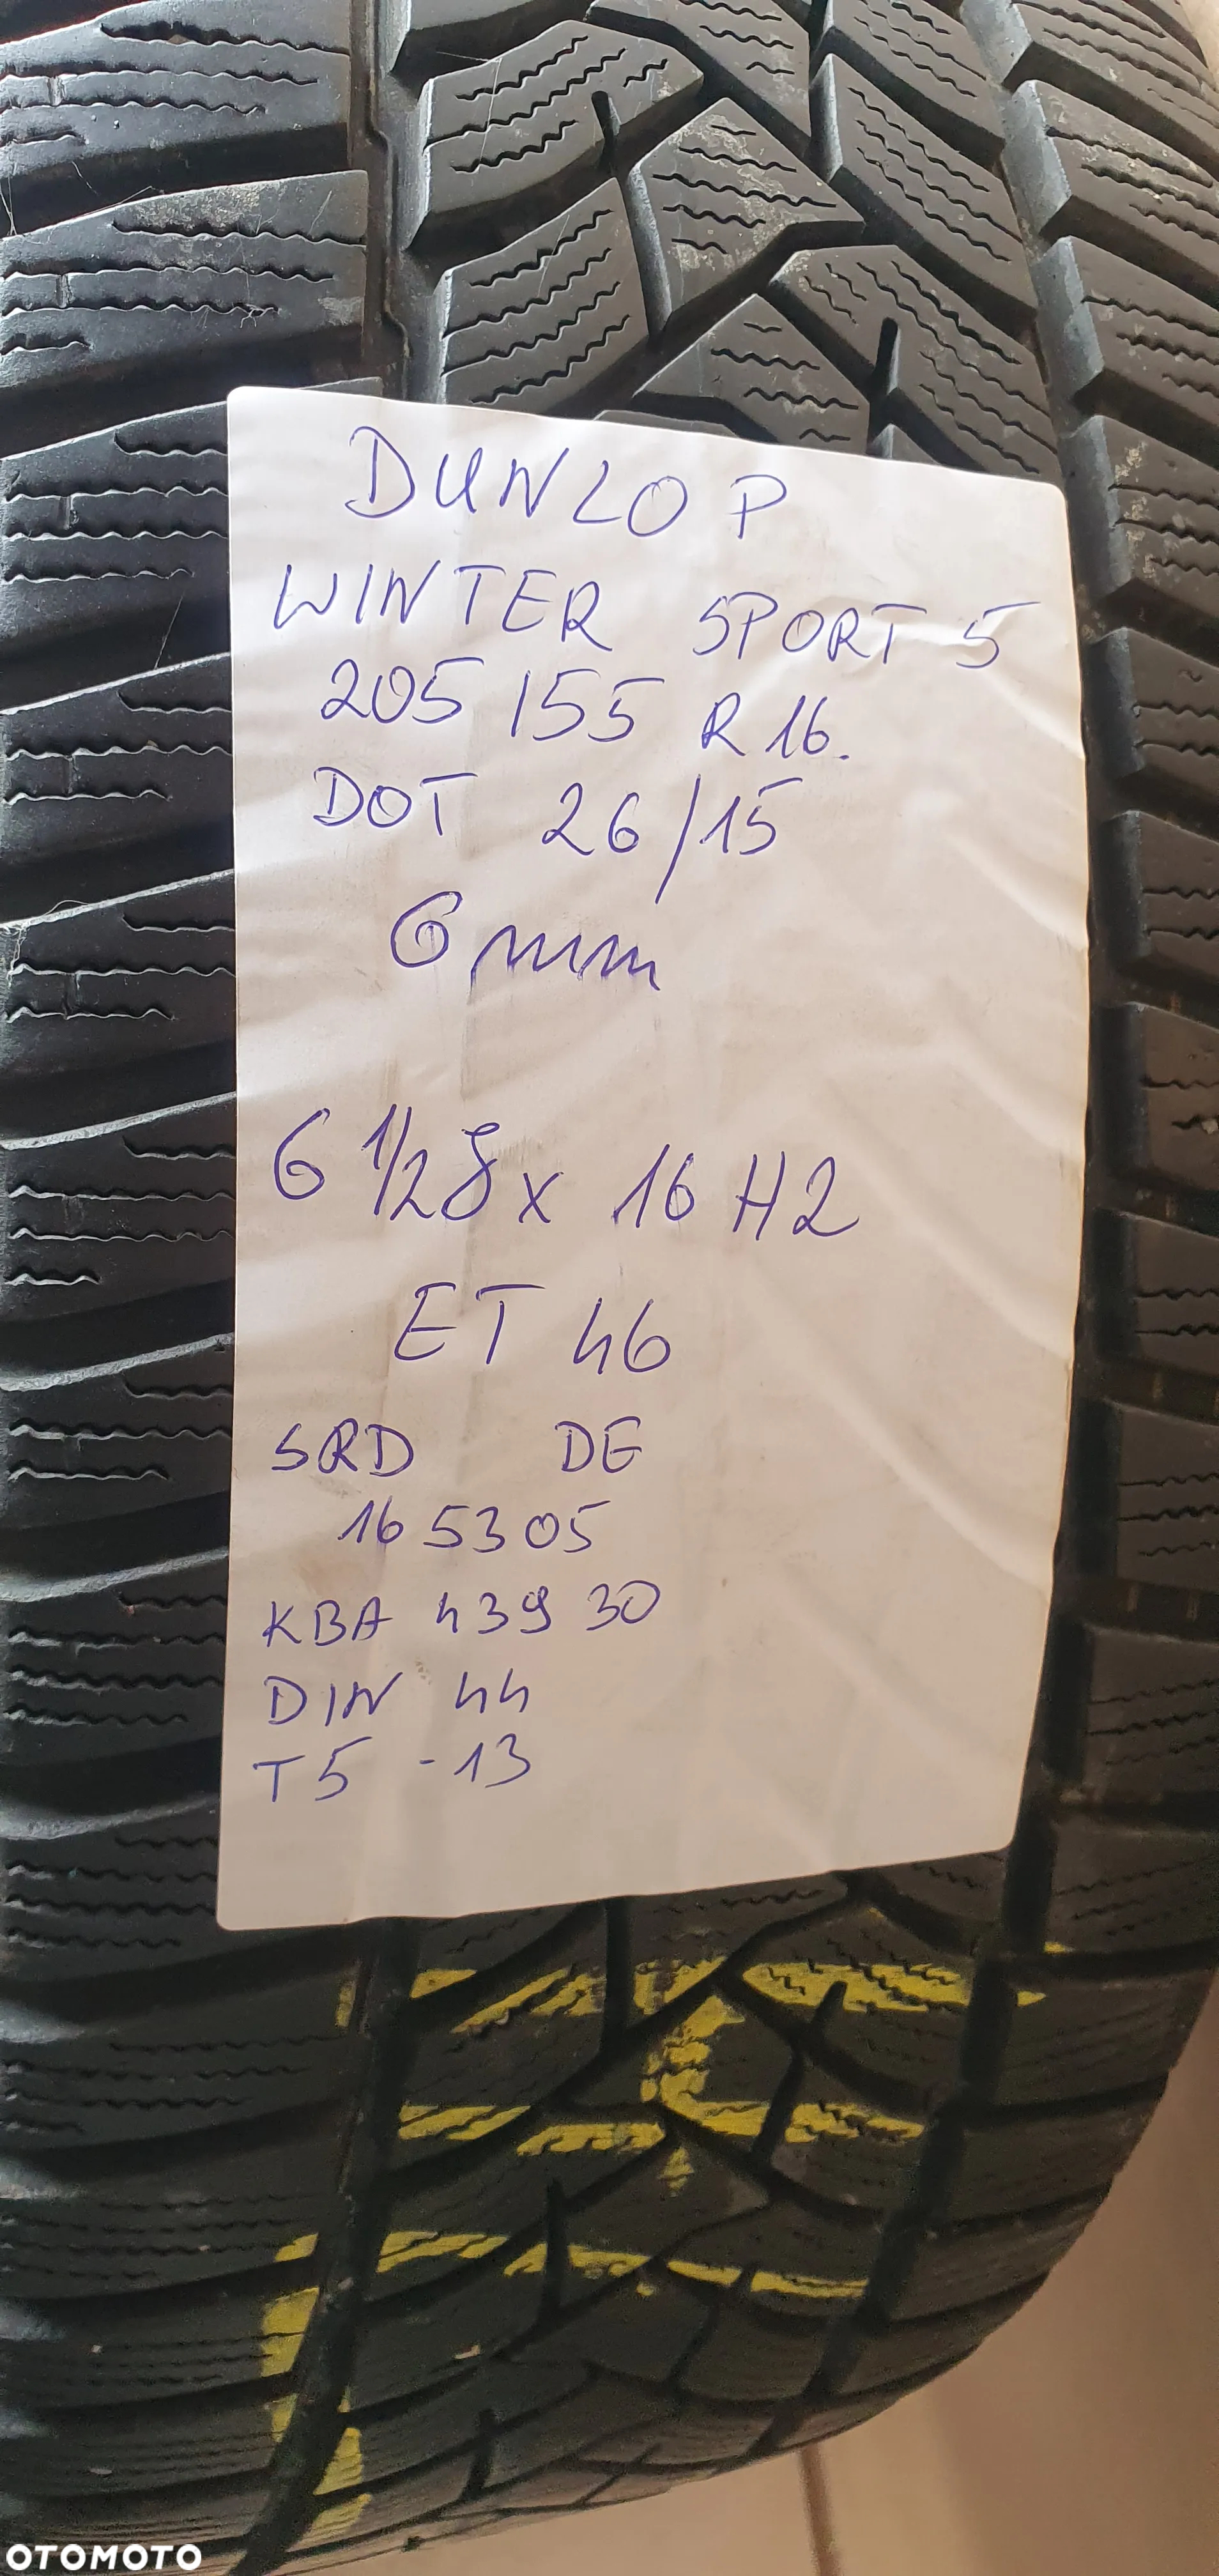 DUNLOP
WINTER SPORT 5
205/55 R16.
DOT 26/15
6mm
6 1/2 J x 16 H2
ET 46
SRD DE
165305
KBA 43930
DIN 44
T5 -13
OTOMOTO